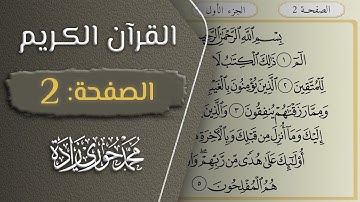 القرآن الكريم
الصفحة: 2
محمد حوري زاده
الصفحة 2
الجزء الأول
بِسْمِ اللَّهِ الرَّحْمَٰنِ
الٓمٓ ۝١ ذَٰلِكَ الْكِتَابُ لَا
لِّلْمُتَّقِينَ ۝٢ الَّذِينَ يُؤْمِنُونَ
وَمِمَّا رَزَقْنَاهُمْ يُنفِقُونَ ۝٣ وَالَّذِينَ
إِلَيْكَ وَمَا أُنزِلَ مِن قَبْلِكَ وَبِالْآخِرَةِ
أُولَٰئِكَ عَلَىٰ هُدًى مِّن رَّبِّهِمْ
هُمُ الْمُفْلِحُونَ ۝٥